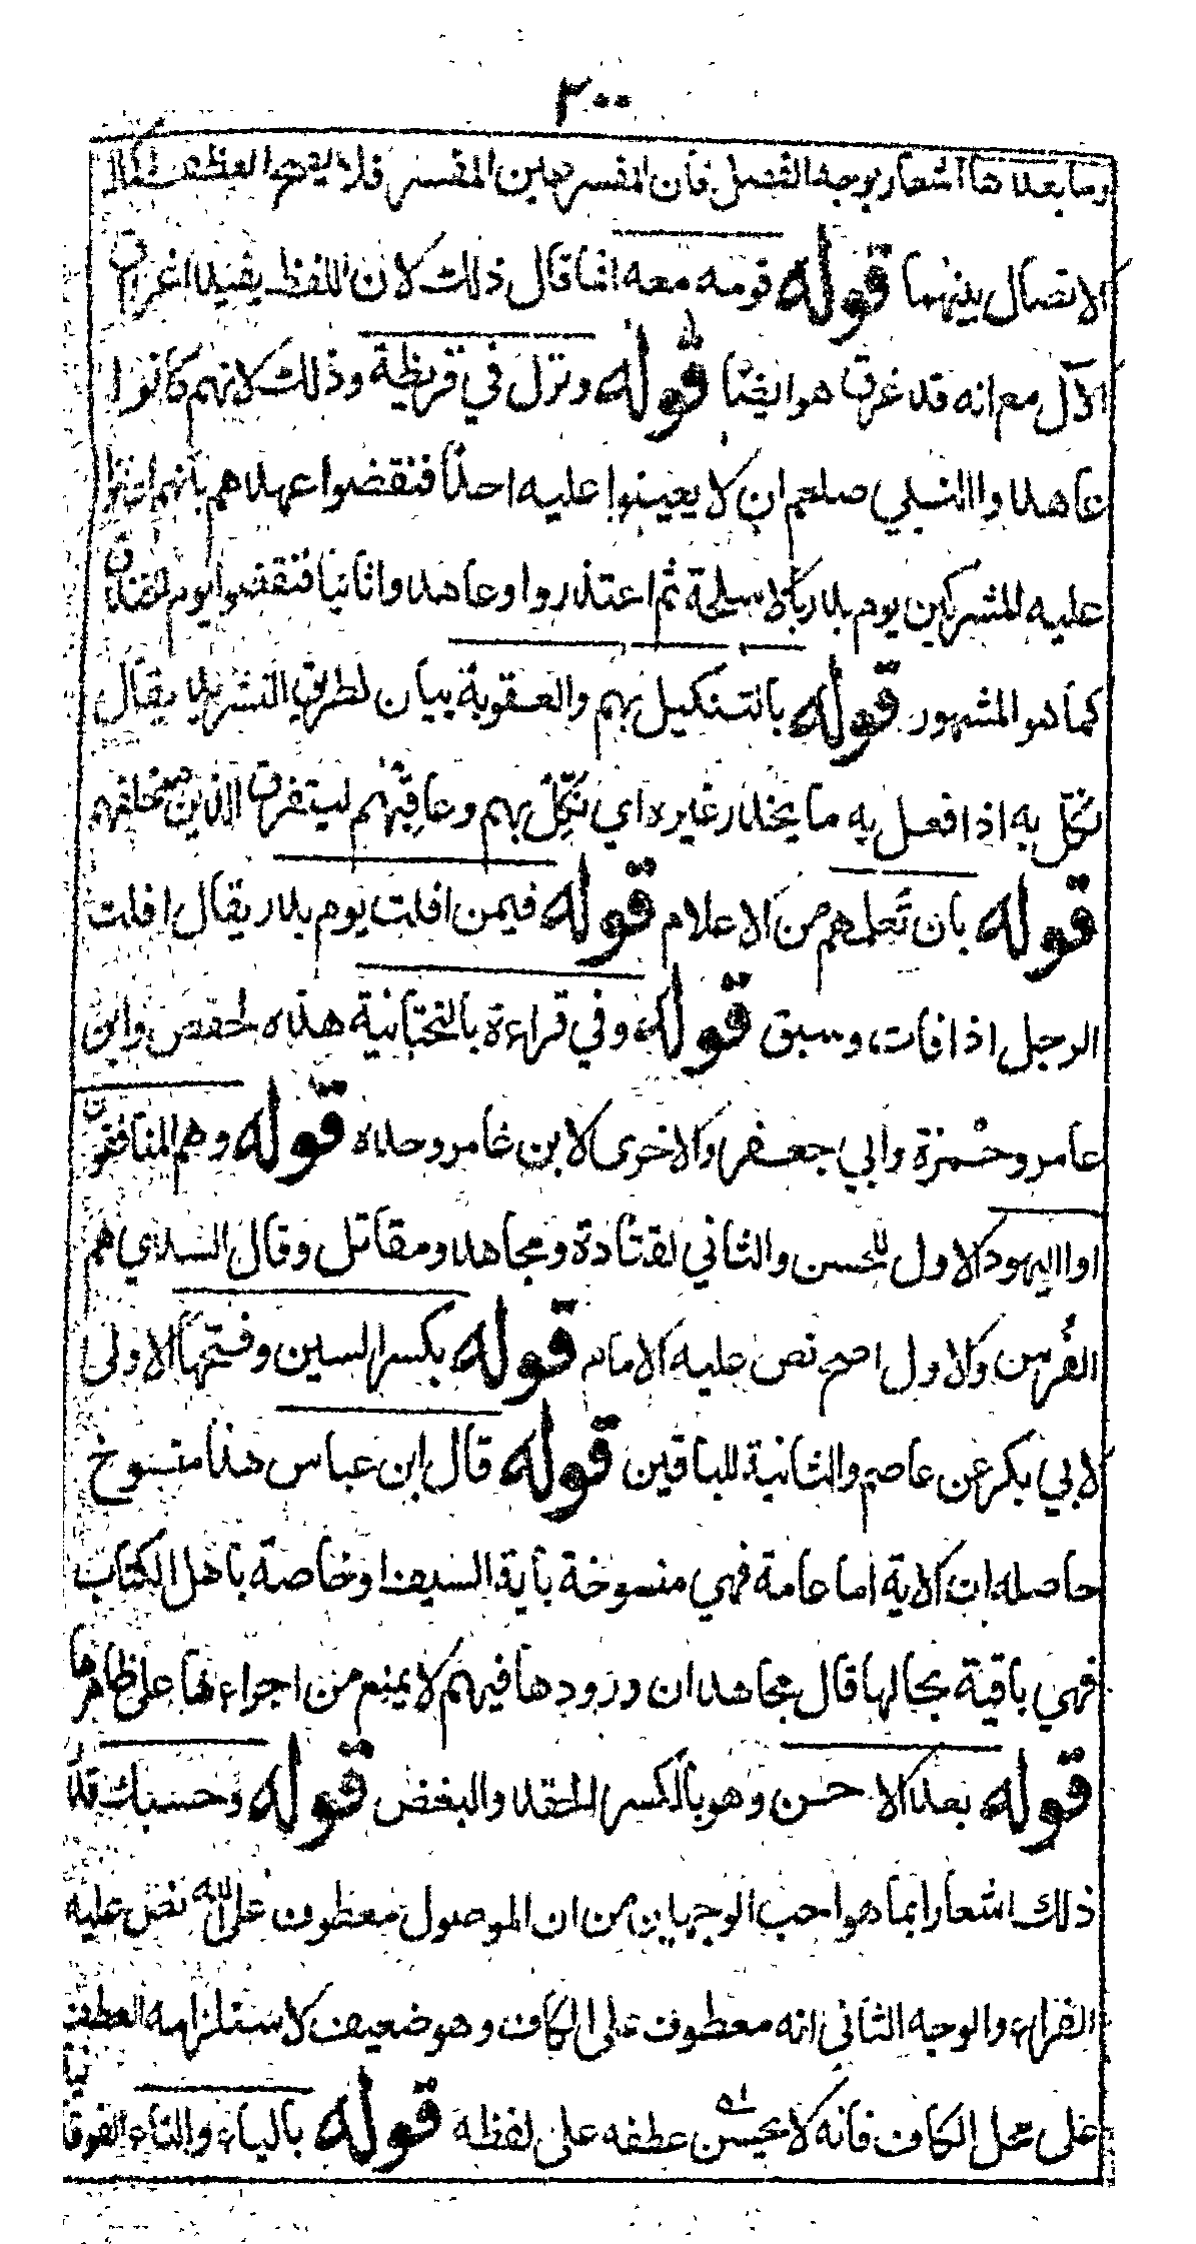 ٣٠٠
وما بعدها اشعار بوجه الفصل فان المفسر عين المفسر فلا يقع العطف لكمال
الاتصال بينهما قوله قومه معه انما قال ذلك لان اللفظ يفيد اغراق
الآل مع انه قد غرق هو ايضا قوله ونزل في قريظة وذلك لانهم كانوا
عاهدوا النبي صلعم ان لا يعينوا عليه احدا فنقضوا عهدهم بانهم اعانوا
عليه المشركين يوم بدر بالاسلحة ثم اعتذروا وعاهدوا ثانيا فنقضوا يوم الخندق
كما هو المشهور قوله بالتنكيل بهم والعقوبة بيان لطريق التشريد يقال
نكّل به اذا فعل به ما يحذر غيره اي نكّل بهم وعاقبهم ليتفرق الذين خلفهم
قوله بان تعلمهم من الاعلام قوله فيمن افلت يوم بدر يقال افلت
الرجل اذا فات وسبق قوله وفي قراءة بالتحتانية هذه لحفص وابن
عامر وحمزة وابي جعفر والاخرى لابن عامر وحده قوله وهم المنافقون
او اليهود الاول للحسن والثاني لقتادة ومجاهد ومقاتل وقال السدي هم
الفُرس والاول اصح نص عليه الامام قوله بكسر السين وفتحها الاولى
لابي بكر عن عاصم والثانية للباقين قوله قال ابن عباس هذا منسوخ
حاصله ان الآية اما عامة فهي منسوخة باية السيف او خاصة باهل الكتاب
فهي باقية بحالها قال مجاهد ان ورودها فيهم لا يمنع من اجراءها على ظاهرها
قوله بعد الاحن وهو بالكسر الحقد والبغض قوله وحسبك قدّر
ذلك اشعارا بما هو احب الوجهين من ان الموصول معطوف على الله نص عليه
الفراء والوجه الثاني انه معطوف على الكاف وهو ضعيف لاستلزامه العطف
على محل الكاف فانه لا يحسن عطفه على لفظه قوله بالياء والتاء الفوقانية